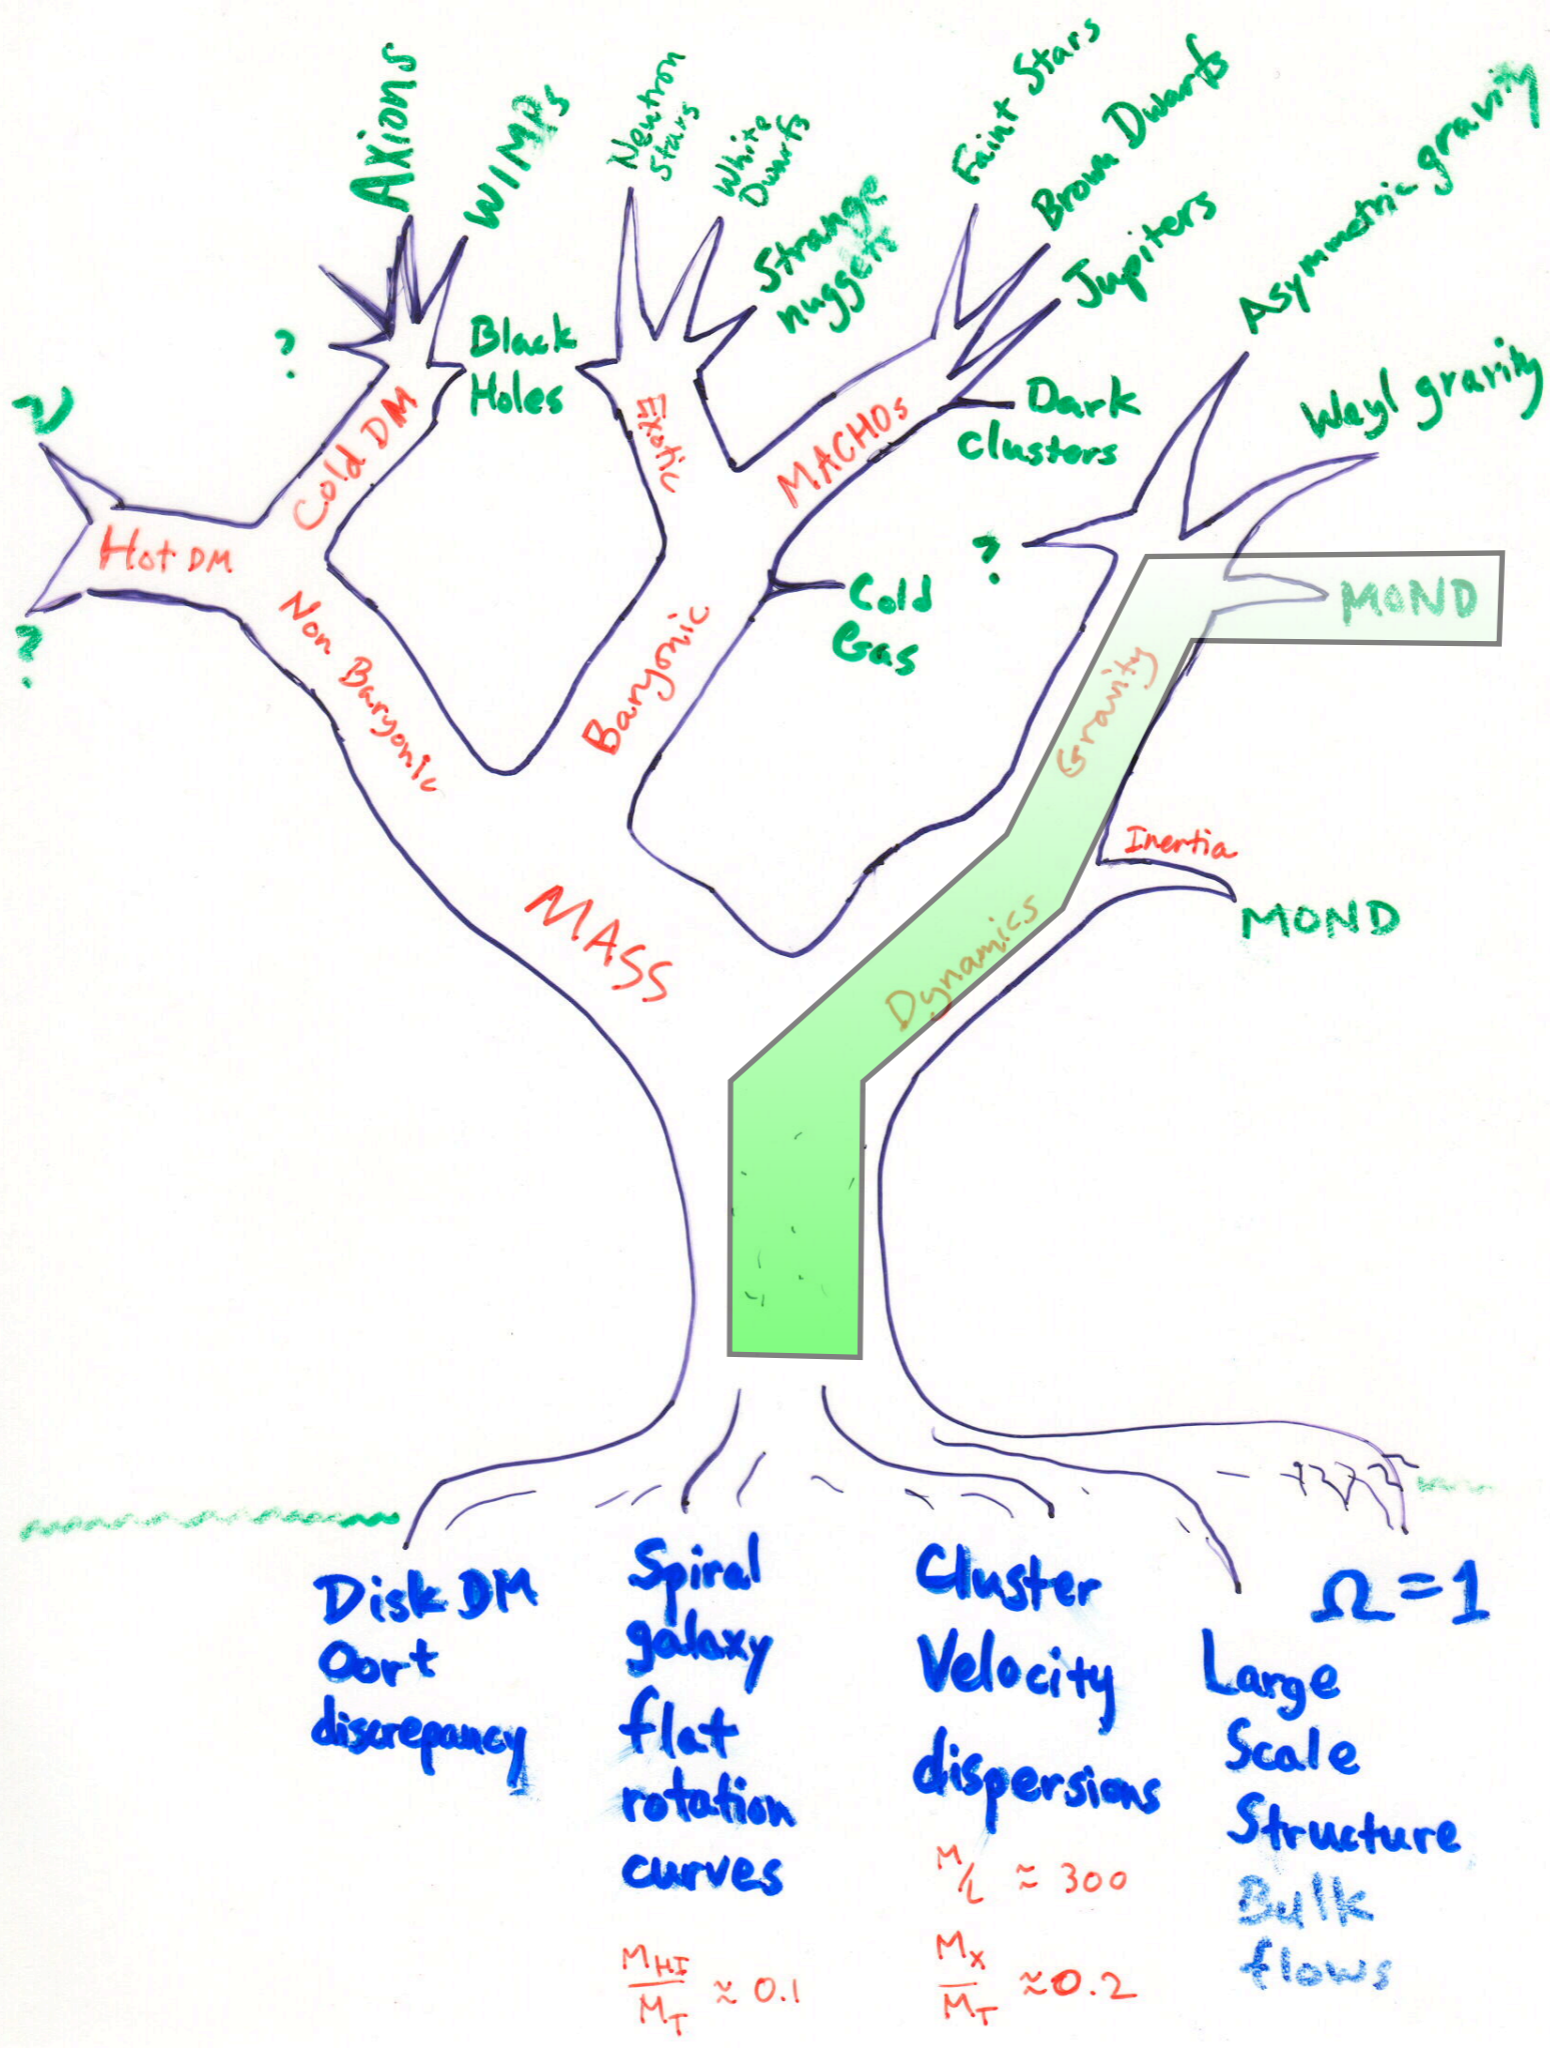 Axions
WIMPs
Neutron
Stars
White
Dwarfs
Strange
nuggets
Faint Stars
Brown Dwarfs
Jupiters
Asymmetric gravity
Weyl gravity
?
Black
Holes
Dark
clusters
ν
?
?
MOND
Cold
Gas
Cold DM
Exotic
MACHOs
Hot DM
Non Baryonic
Baryonic
Gravity
Inertia
MOND
MASS
Dynamics
Disk DM
Oort
discrepancy
Spiral
galaxy
flat
rotation
curves
M_HI / M_T ≈ 0.1
Cluster
Velocity
dispersions
M/L ≈ 300
M_X / M_T ≈ 0.2
Ω = 1
Large
Scale
Structure
Bulk
flows